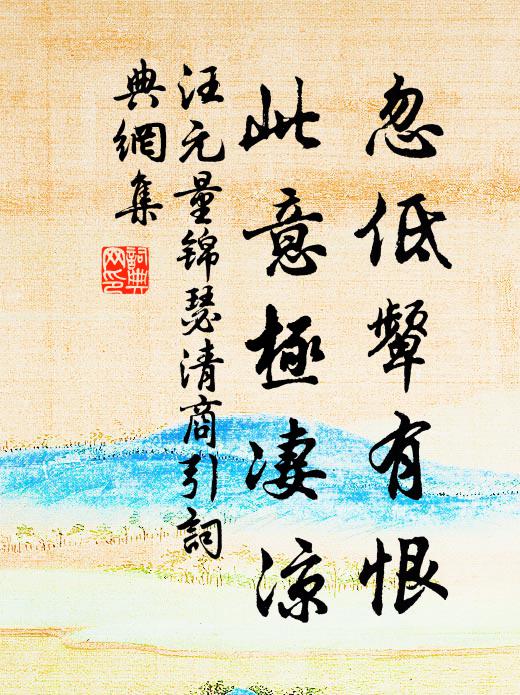 忽低顰有恨
此意極淒涼
汪元量錦瑟清商引詞
典網集
詞典網印